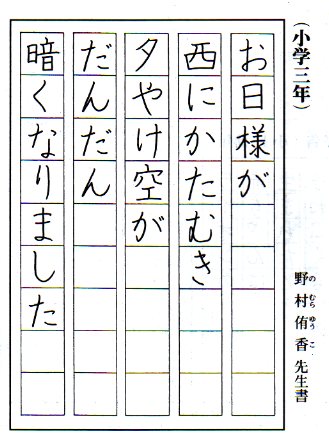 (小学三年)
野村侑香先生書
のむらゆうこ
お日様が
西にかたむき
夕やけ空が
だんだん
暗くなりました